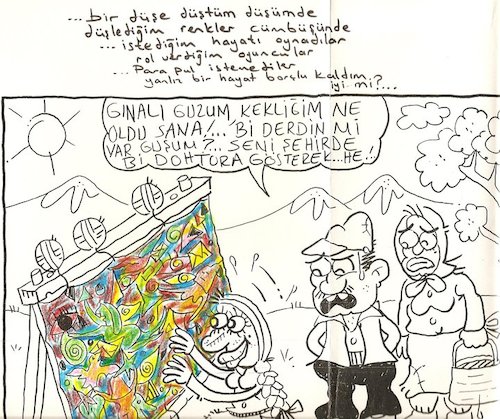 ...bir düşe düştüm düşümde
düşlediğim renkler cümbüşünde
...istediğim hayatı oynadılar
rol verdiğim oyuncular
...Para pul istemediler
yanlız bir hayat borçlu kaldım
iyi mi?...
GINALI GUZUM, KEKLİĞİM NE
OLDU SANA!... Bİ DERDİN Mİ
VAR GUŞUM?... SENİ ŞEHİRDE
Bİ DOHTORA GÖSTEREK...HE.!